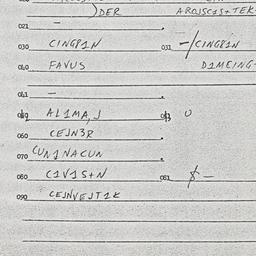 )DER AROJSCIS+TEK-
021 -
030 CINGPIN 031 -/CINGPIN
040 FAVUS DIMEING-
041 -
AL1MA,J U
060 CEJN3R
070 CUNJNACUN
080 C1V1S+N 081 $-
090 CEJNVEJT1K